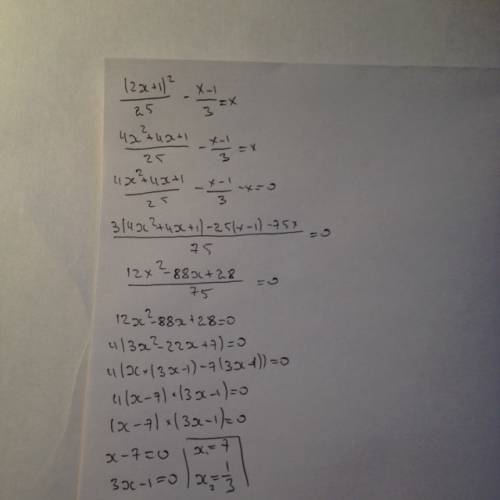 (2x+1)²/25 - x-1/3 = x
4x²+4x+1/25 - x-1/3 = x
4x²+4x+1/25 - x-1/3 - x = 0
3(4x²+4x+1)-25(x-1)-75x/75 = 0
12x²-88x+28/75 = 0
12x²-88x+28=0
4(3x²-22x+7)=0
4(x·(3x-1)-7(3x-1))=0
4(x-7)·(3x-1)=0
(x-7)·(3x-1)=0
x-7=0 x₁=7
3x-1=0 x₂=1/3